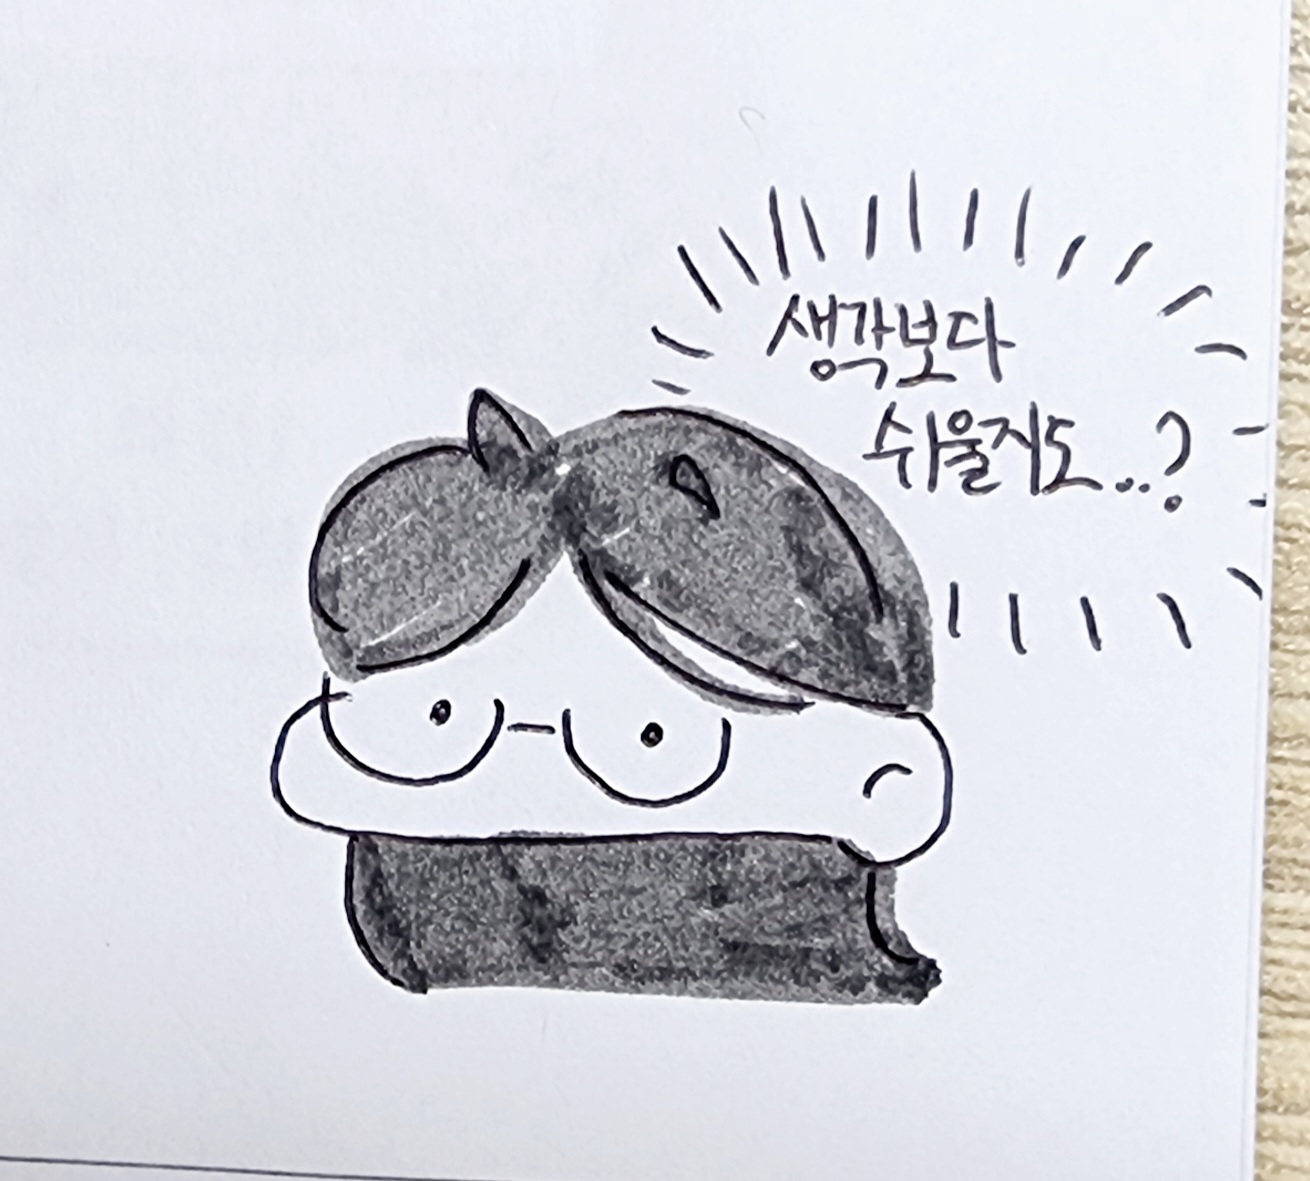 생각보다
쉬울지도..?